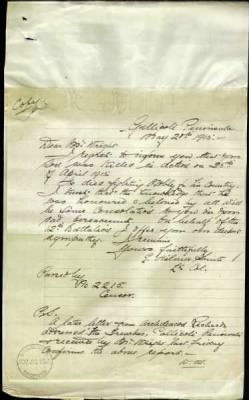 Copy
Gallipoli Peninsula
May 28th 1915
Dear Mr Wright
I regret to inform you that your
son was killed in action on 25th
of April 1915
He died fighting nobly for his Country.
I trust that the knowledge that he
was honoured & beloved by all will
be some consolation to you in your
sad bereavement. On behalf of the
12th Battalion I offer you our deepest
sympathy. I remain
Yours faithfully
Lt Col.
Passed by
No 2215
Censor.
P.S.
A later letter from Archdeacon Richards
addressed the Trenches, Gallipoli Peninsula
& received by Mr Wright last Friday
confirms the above report.